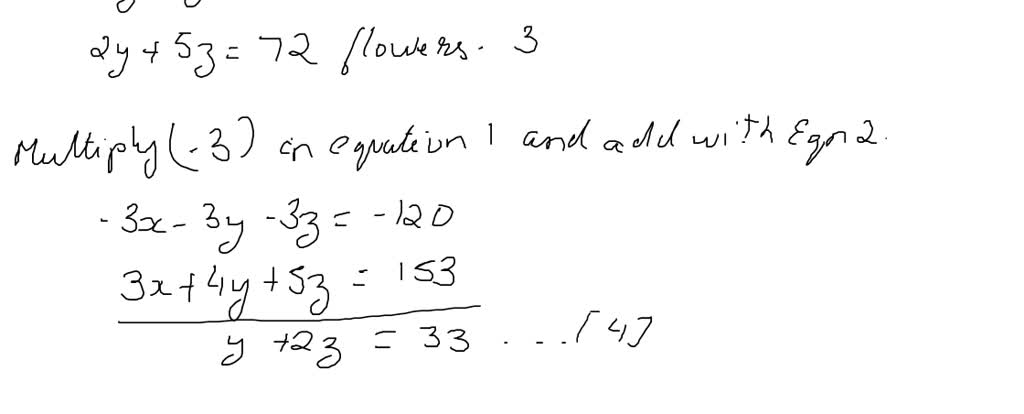 2y + 5z = 72 flowers. 3
Multiply (-3) in equation 1 and add with Eqn 2.
-3x - 3y - 3z = -120
3x + 4y + 5z = 153
y + 2z = 33 ....[4]